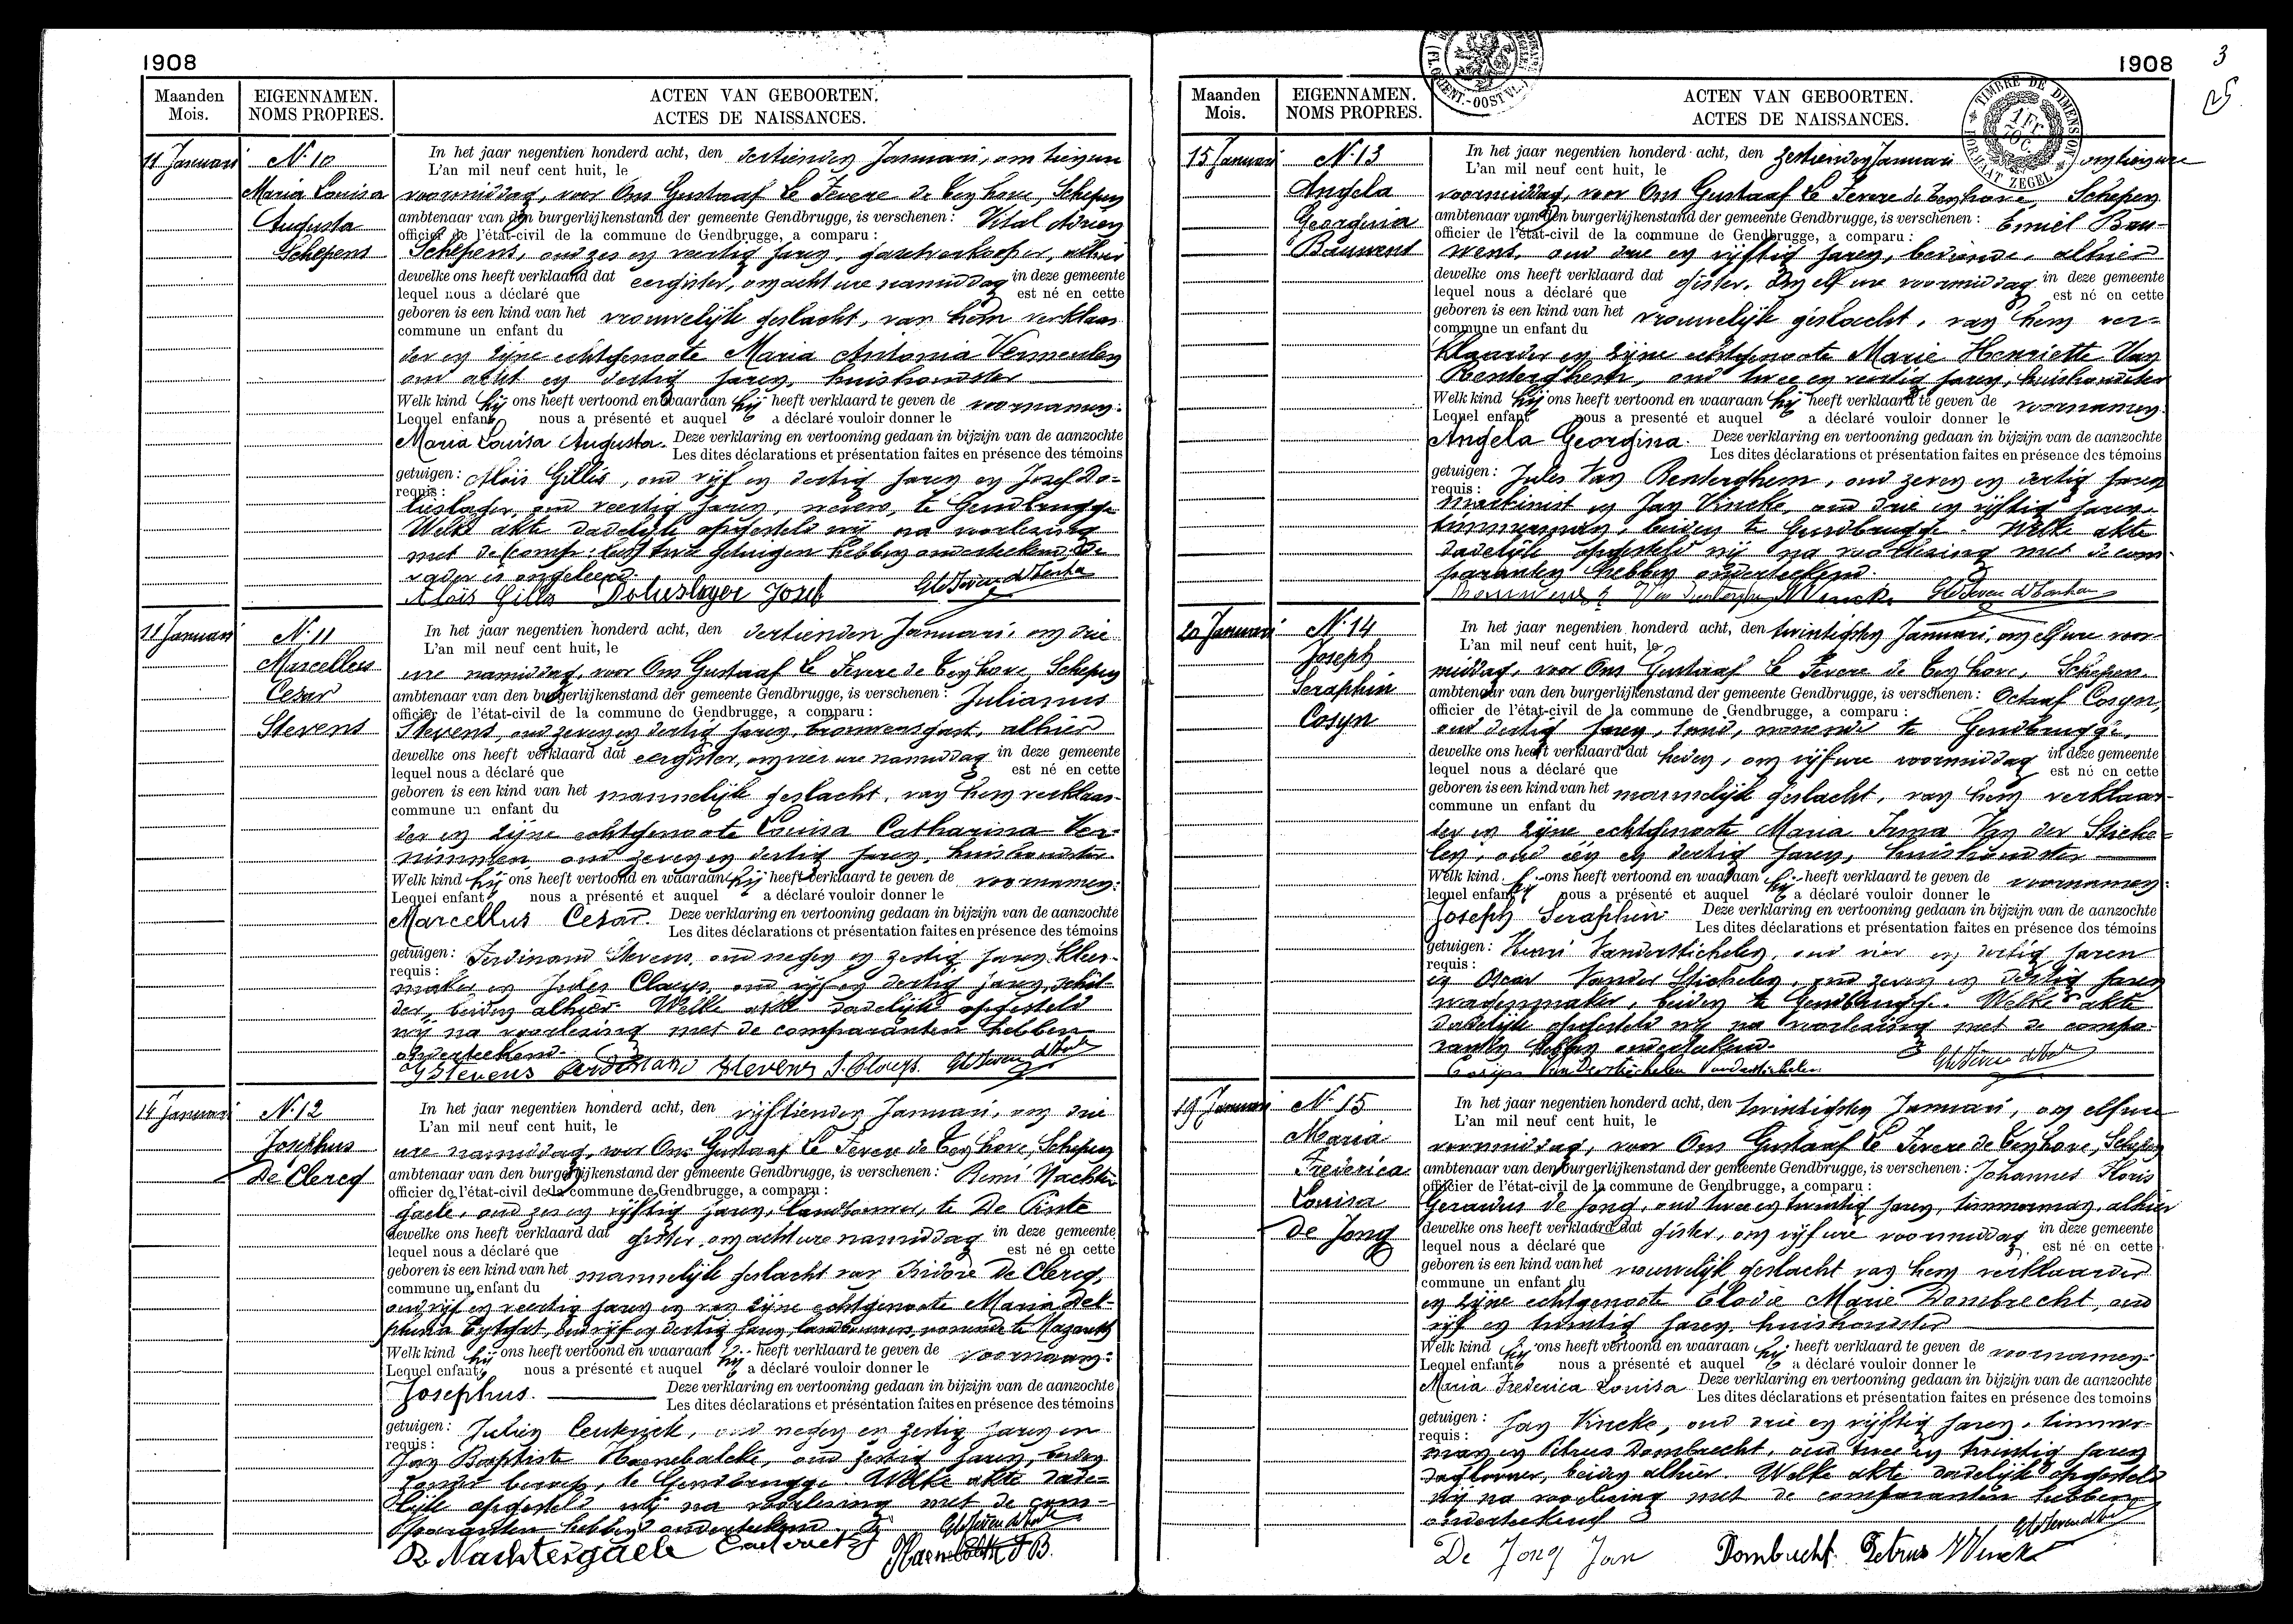 1908
Maanden
Mois.
EIGENNAMEN.
NOMS PROPRES.
ACTEN VAN GEBOORTEN.
ACTES DE NAISSANCES.
11 Januari
N. 10
Maria Louisa
Augusta
Schepens
In het jaar negentien honderd acht, den dertienden Januari, om tien ure
L'an mil neuf cent huit, le
voormiddag, voor Ons Gustaaf Le Fevere de Ten Hove, Schepen
ambtenaar van den burgerlijkenstand der gemeente Gendbrugge, is verschenen : Vital Adrien
officier de l'état-civil de la commune de Gendbrugge, a comparu :
Schepens, oud zes en veertig jaren, alhier
dewelke ons heeft verklaard dat eergister, om acht ure namiddag in deze gemeente
lequel nous a déclaré que est né en cette
geboren is een kind van het vrouwelijk geslacht, van hem verklaar
commune un enfant du
der en zijne echtgenoote Maria Antonia Vermeulen
oud acht en dertig jaren, huishoudster
Welk kind hij ons heeft vertoond en waaraan hij heeft verklaard te geven de voornamen:
Lequel enfant nous a présenté et auquel a déclaré vouloir donner le
Maria Louisa Augusta. Deze verklaring en vertooning gedaan in bijzijn van de aanzochte
Les dites déclarations et présentation faites en présence des témoins
getuigen : Aloïs Gillis, oud vijf en dertig jaren en Josef Do-
requis :
lieslager, oud veertig jaren, te Gendbrugge
Welke akte dadelijk opgesteld wij na voorlezing
met de twee getuigen hebben onderteekend, de
vader is ongeleerd.
Aloïs Gillis Dolieslager Josef
11 Januari
N. 11
Marcellus
Cesar
Stevens
In het jaar negentien honderd acht, den dertienden Januari, om drie
L'an mil neuf cent huit, le
ure namiddag, voor Ons Gustaaf Le Fevere de Ten Hove, Schepen
ambtenaar van den burgerlijkenstand der gemeente Gendbrugge, is verschenen : Julianus
officier de l'état-civil de la commune de Gendbrugge, a comparu :
Stevens, oud zeven en dertig jaren, brouwersgast, alhier
dewelke ons heeft verklaard dat eergister, om vier ure namiddag in deze gemeente
lequel nous a déclaré que est né en cette
geboren is een kind van het mannelijk geslacht, van hem verklaar-
commune un enfant du
der en zijne echtgenoote Louisa Catharina Ver-
nimmen, oud zeven en dertig jaren, huishoudster
Welk kind hij ons heeft vertoond en waaraan hij heeft verklaard te geven de voornamen:
Lequel enfant nous a présenté et auquel a déclaré vouloir donner le
Marcellus Cesar. Deze verklaring en vertooning gedaan in bijzijn van de aanzochte
Les dites déclarations et présentation faites en présence des témoins
getuigen : Ferdinand Stevens, oud negen en zestig jaren, kleer-
requis :
maker en Jules Claeys, oud vijf en dertig jaren, schil-
der, beiden alhier. Welke akte dadelijk opgesteld
wij na voorlezing met de comparanten hebben
onderteekend.
J Stevens Ferdinand Stevens J. Claeys.
14 Januari
N. 12
Josephus
De Clercq
In het jaar negentien honderd acht, den vijftienden Januari, om drie
L'an mil neuf cent huit, le
ure namiddag, voor Ons Gustaaf Le Fevere de Ten Hove, Schepen
ambtenaar van den burgerlijkenstand der gemeente Gendbrugge, is verschenen : Remi Nachter
officier de l'état-civil de la commune de Gendbrugge, a comparu :
gaele, oud zes en vijftig jaren, landbouwer, te De Pinte
dewelke ons heeft verklaard dat gister, om acht ure namiddag in deze gemeente
lequel nous a déclaré que est né en cette
geboren is een kind van het mannelijk geslacht van Isidore De Clercq,
commune un enfant du
oud vijf en veertig jaren en van zijne echtgenoote Maria Del-
phina Eytgat, oud vijf en dertig jaren, landbouwers, wonende te Nazareth
Welk kind hij ons heeft vertoond en waaraan hij heeft verklaard te geven de voornaam:
Lequel enfant nous a présenté et auquel a déclaré vouloir donner le
Josephus. Deze verklaring en vertooning gedaan in bijzijn van de aanzochte
Les dites déclarations et présentation faites en présence des témoins
getuigen : Julien Ceuterick, oud negen en zestig jaren en
requis :
Jan Baptist Haenebalcke, oud zestig jaren, beiden
zonder beroep, te Gendbrugge. Welke akte dade-
lijk opgesteld wij na voorlezing met de com-
paranten hebben onderteekend.
R. Nachtergaele Ceuterick J Haenebalcke J B.
1908
3
Maanden
Mois.
EIGENNAMEN.
NOMS PROPRES.
ACTEN VAN GEBOORTEN.
ACTES DE NAISSANCES.
TIMBRE DE DIMENSION
FORMAAT ZEGEL
15 Januari
N. 13
Angela
Georgina
Bauwens
In het jaar negentien honderd acht, den zestienden Januari om tien ure
L'an mil neuf cent huit, le
voormiddag, voor Ons Gustaaf Le Fevere de Ten Hove, Schepen
ambtenaar van den burgerlijkenstand der gemeente Gendbrugge, is verschenen : Emiel Bau-
officier de l'état-civil de la commune de Gendbrugge, a comparu :
wens, oud drie en vijftig jaren, bediende, alhier
dewelke ons heeft verklaard dat gister, om elf ure voormiddag in deze gemeente
lequel nous a déclaré que est né en cette
geboren is een kind van het vrouwelijk geslacht, van hem ver-
commune un enfant du
klaarder en zijne echtgenoote Marie Henriette Van
Renterghem, oud twee en veertig jaren, huishoudster
Welk kind hij ons heeft vertoond en waaraan hij heeft verklaard te geven de voornamen:
Lequel enfant nous a presenté et auquel a déclaré vouloir donner le
Angela Georgina. Deze verklaring en vertooning gedaan in bijzijn van de aanzochte
Les dites déclarations et présentation faites en présence des témoins
getuigen : Jules Van Renterghem, oud zeven en dertig jaren
requis :
machinist en Jan Vincke, oud drie en vijftig jaren
timmerman, beiden te Gendbrugge. Welke akte
dadelijk opgesteld wij na voorlezing met de com-
paranten hebben onderteekend.
20 Januari
N. 14
Joseph
Seraphin
Cosyn
In het jaar negentien honderd acht, den twintigsten Januari, om elf ure voor-
L'an mil neuf cent huit, le
middag, voor Ons Gustaaf Le Fevere de Ten Hove, Schepen.
ambtenaar van den burgerlijkenstand der gemeente Gendbrugge, is verschenen : Octaaf Cosyn,
officier de l'état-civil de la commune de Gendbrugge, a comparu :
oud dertig jaren, smid, wonende te Gendbrugge,
dewelke ons heeft verklaard dat heden, om vijf ure voormiddag in deze gemeente
lequel nous a déclaré que est né en cette
geboren is een kind van het mannelijk geslacht, van hem verklaar-
commune un enfant du
der en zijne echtgenoote Maria Irma Van der Stiche-
len, oud een en dertig jaren, huishoudster
Welk kind hij ons heeft vertoond en waaraan hij heeft verklaard te geven de voornamen:
lequel enfant nous a présenté et auquel a déclaré vouloir donner le
Joseph Seraphin Deze verklaring en vertooning gedaan in bijzijn van de aanzochte
Les dites déclarations et présentation faites en présence des témoins
getuigen : Henri Vanderstichelen, oud vier en dertig jaren
requis :
en Oscar Vander Stichelen, oud zeven en dertig jaren
wagenmaker, beiden te Gendbrugge. Welke akte
dadelijk opgesteld wij na voorlezing met de compa-
ranten hebben onderteekend.
Cosijn Van Derstichelen Vanderstichelen
19 Januari
N. 15
Maria
Frederica
Louisa
De Jong
In het jaar negentien honderd acht, den twintigsten Januari, om elf ure
L'an mil neuf cent huit, le
voormiddag, voor Ons Gustaaf Le Fevere de Ten Hove, Schepen
ambtenaar van den burgerlijkenstand der gemeente Gendbrugge, is verschenen : Johannes Floris
officier de l'état-civil de la commune de Gendbrugge, a comparu :
Gerardus de Jong, oud twee en twintig jaren, timmerman, alhier
dewelke ons heeft verklaard dat gister, om vijf ure voormiddag in deze gemeente
lequel nous a déclaré que est né en cette
geboren is een kind van het vrouwelijk geslacht van hem verklaarder
commune un enfant du
en zijne echtgenoote Elodie Marie Dombrecht, oud
vijf en twintig jaren, huishoudster
Welk kind hij ons heeft vertoond en waaraan hij heeft verklaard te geven de voornamen:
Lequel enfant nous a présenté et auquel a déclaré vouloir donner le
Maria Frederica Louisa Deze verklaring en vertooning gedaan in bijzijn van de aanzochte
Les dites déclarations et présentation faites en présence des temoins
getuigen : Jan Vincke, oud drie en vijftig jaren, timmer-
requis :
man en Petrus Dombrecht, oud twee en twintig jaren
daglooner, beiden alhier. Welke akte dadelijk opgesteld
wij na voorlezing met de comparanten hebben
onderteekend
De Jong Jan Dombrecht Petrus J Vincke